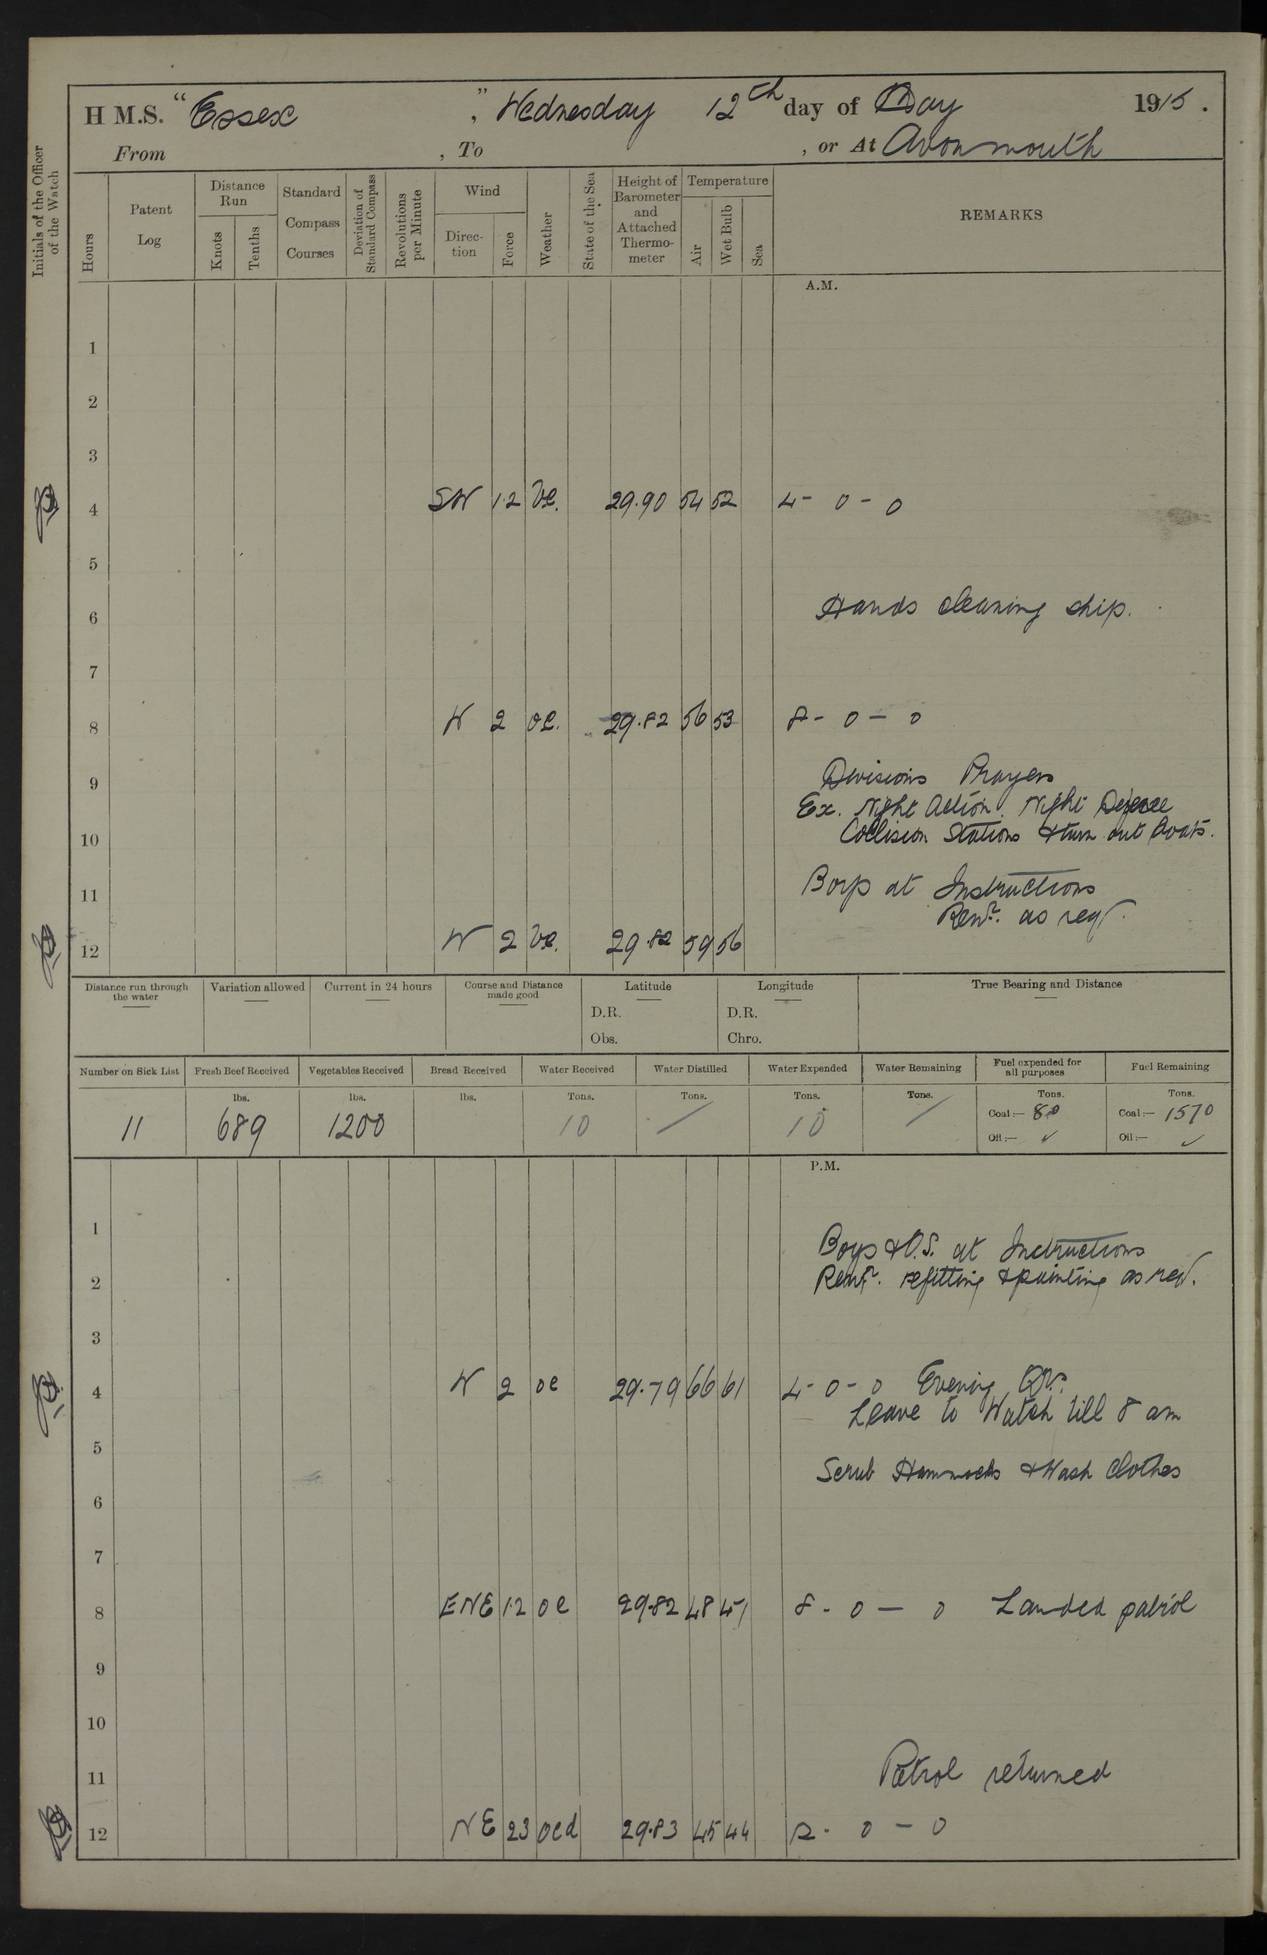 H.M.S. "Essex", Wednesday 12th day of May 1915.
From , To , or At Avonmouth
Initials of the Officer of the Watch
Hours
Patent Log
Distance Run
Knots
Tenths
Standard Compass Courses
Deviation of Standard Compass
Revolutions per Minute
Wind
Direc-tion
Force
Weather
State of the Sea
Height of Barometer and Attached Thermo-meter
Temperature
Air
Wet Bulb
Sea
REMARKS
A.M.
1
2
3
4 SW 1.2 bc. 29.90 54 52 4 - 0 - 0
5
6 Hands cleaning ship.
7
8 W 2 oc. 29.82 56 53 8 - 0 - 0
9 Divisions Prayers
Ex. Night Action. Night Defence
10 Collision Stations & turn out boats.
11 Boys at Instructions
Remr. as reqd.
12 W 2 bc. 29.82 59 56
Distance run through the water
Variation allowed
Current in 24 hours
Course and Distance made good
Latitude
D.R.
Obs.
Longitude
D.R.
Chro.
True Bearing and Distance
Number on Sick List
Fresh Beef Received
Vegetables Received
Bread Received
Water Received
Water Distilled
Water Expended
Water Remaining
Fuel expended for all purposes
Fuel Remaining
lbs. lbs. lbs. Tons. Tons. Tons. Tons. Tons. Tons.
11 689 1200 10 / 10 / Coal:— 80 Coal:— 1570
Oil:— ✓ Oil:— ✓
P.M.
1 Boys & O.S. at Instructions
2 Remr. refitting & painting as req.
3
4 W 2 oc 29.79 66 61 4 - 0 - 0 Evening Qrs.
Leave to Watch till 8 am
5 Scrub Hammocks & Wash Clothes
6
7
8 ENE 1.2 oc 29.82 48 47 8 - 0 - 0 Landed patrol
9
10
11 Patrol returned
12 NE 23 ocd 29.83 45 44 12 - 0 - 0